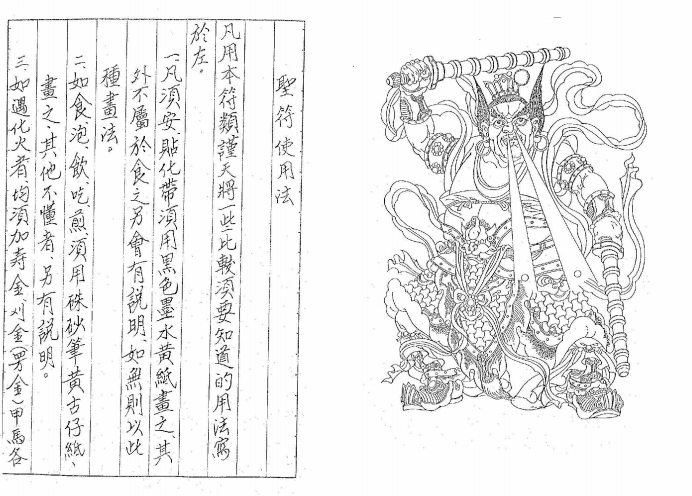 聖符使用法
凡用本符類謹天將一些比較須要知道的用法寫
於左。
一、凡須安貼化帶須用黑色墨水黃紙畫之、其
外不屬於食之另會有説明、如無則以此
種畫法。
二、如食泡、飲、吃、煎、須用硃砂筆黃古仔紙、
畫之、其他不懂者、另有説明。
三、如遇化火者均須加寿金刈金(男金)甲馬各